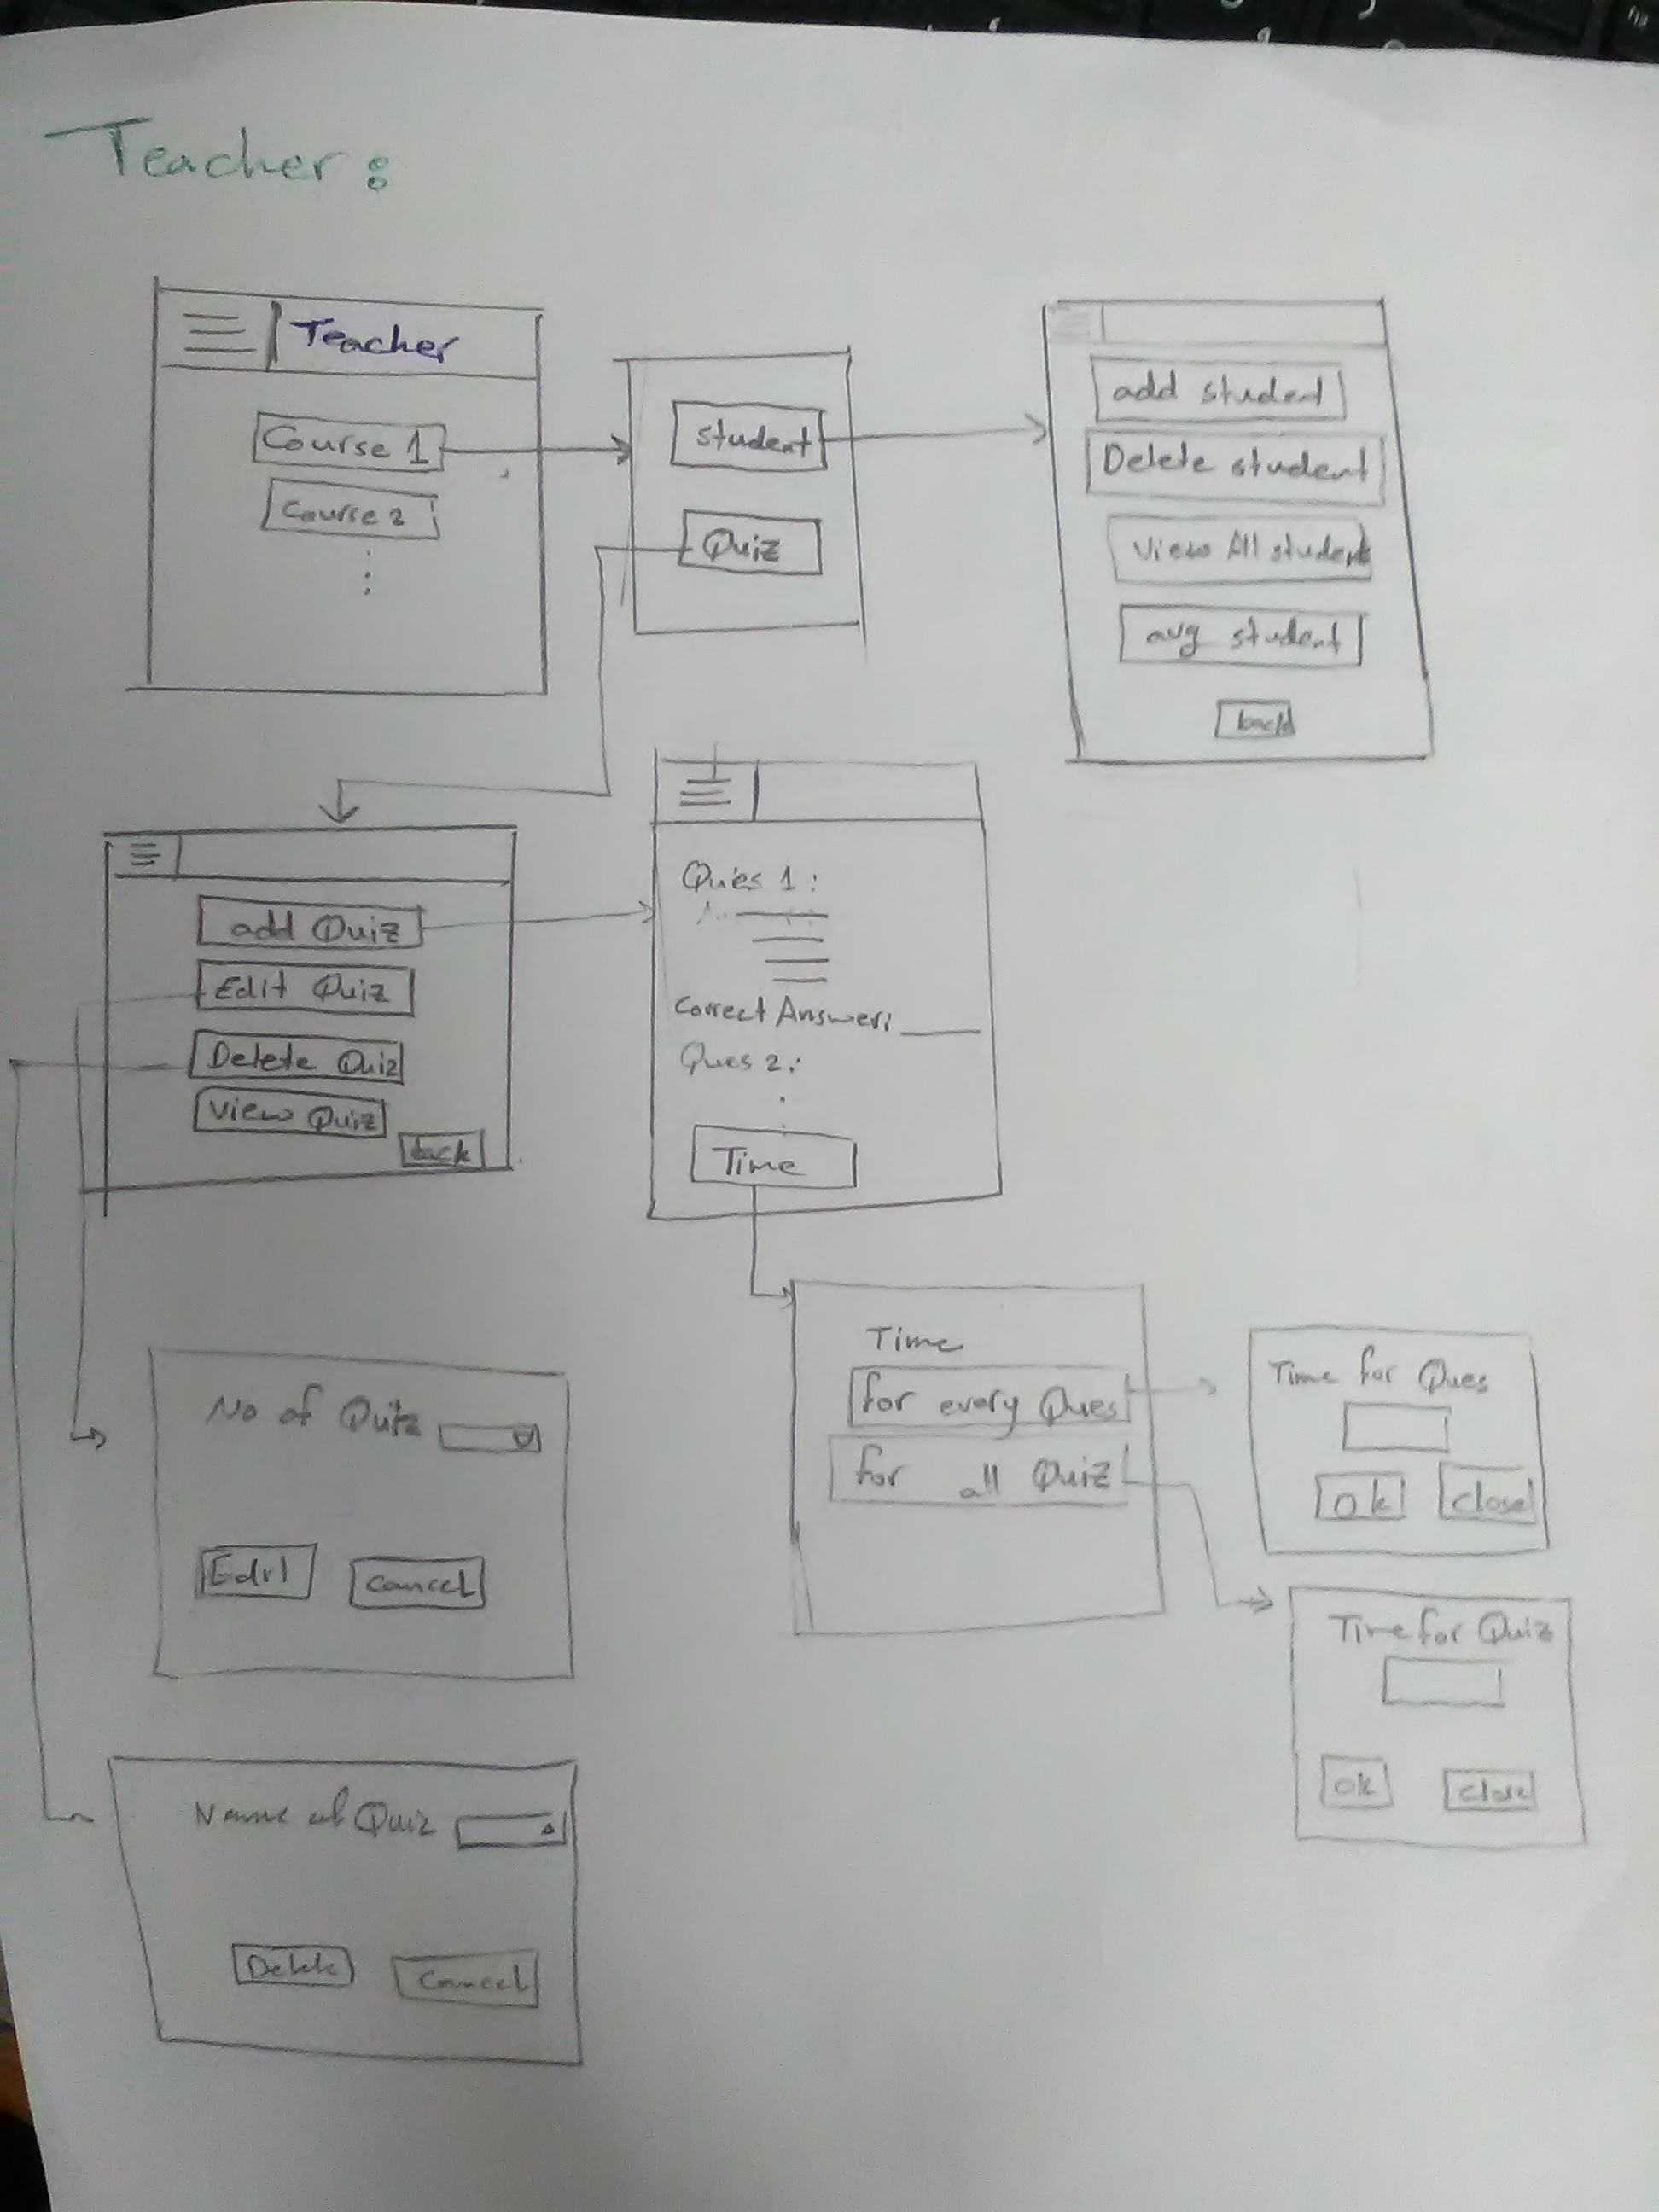 Teacher:
Teacher
Course 1
Course 2
student
Quiz
add student
Delete student
View All student
avg student
back
add Quiz
Edit Quiz
Delete Quiz
View Quiz
back
Ques 1:
Correct Answer:
Ques 2:
Time
Time
for every Ques
for all Quiz
Time for Ques
Ok
Close
Time for Quiz
Ok
Close
No of Quiz
Edit
Cancel
Name of Quiz
Delete
Cancel